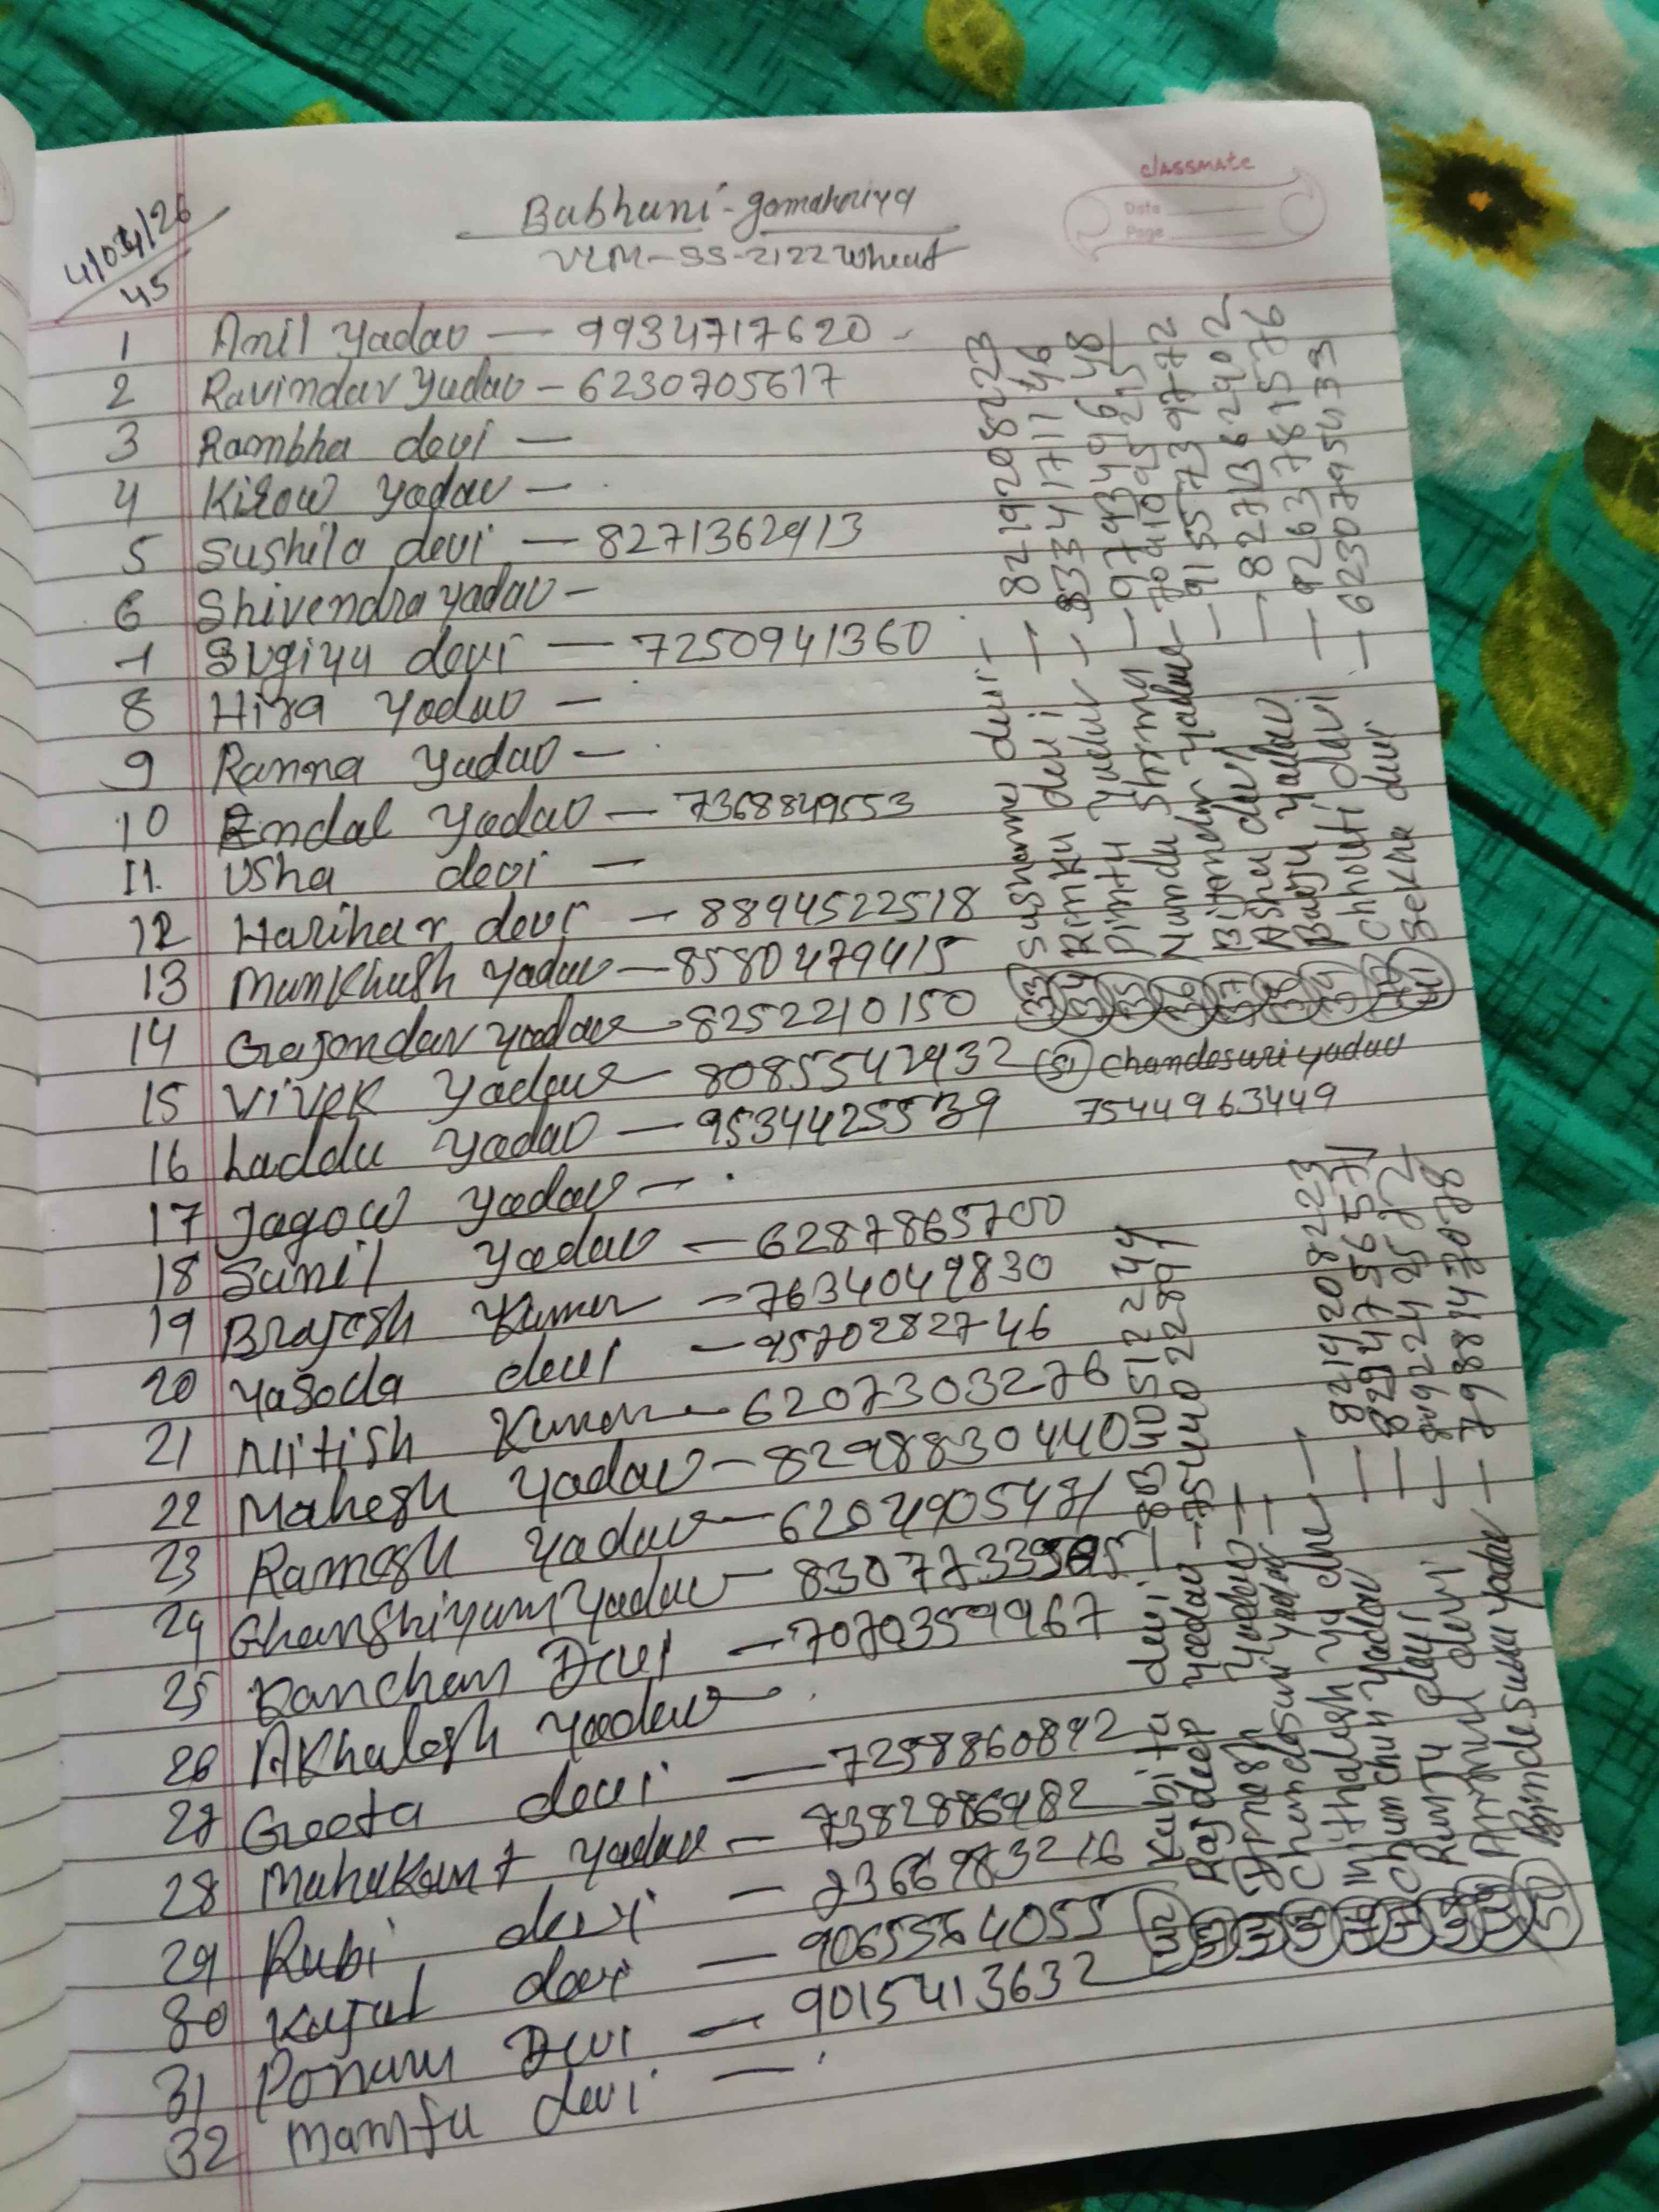 classmate
Date
Page
4/03/26
45
Babhani-gamahriya
VLM-SS-2122 Wheat
1 Anil Yadav — 9934717620
2 Ravindar Yadav — 6230705617
3 Rambha devi —
4 Kisow Yadav —
5 Sushila devi — 8271362913
6 Shivendra yadav —
7 Sugiya devi — 7250941360
8 Hira Yadav —
9 Ranna Yadav —
10 Yadav — 7368849553
11. Usha devi —
12 Harihar devi — 8894522518
13 Mankhush Yadav — 8580479415
14 Gajendar yadav — 8252210150
15 Vivek Yadav — 8085542932
16 Laddu Yadav — 9534425539
17 Jagow Yadav —
18 Sunil Yadav — 6287865700
19 Brajesh Kumar — 7634049830
20 Yasoda devi — 9570282746
21 Nitish Kumar — 6207303276
22 Mahesh Yadav — 8298830440
23 Ramesh Yadav — 6202905481
24 Ghanshiyam Yadav —
25 Kanchan Devi — 7070359967
26 Akhalesh Yadav
27 Geeta devi — 7258860892
28 Mahakant Yadav — 7382886982
29 Rubi devi — 7366983216
30 Kajal devi — 9065564055
31 Ponam Devi — 9015413632
32 Mamta devi —
33 Sushama devi — 8219208223
34 Rinku devi — 8334171146
35 Pintu Yadav —
36 Nanda Shrma —
37 Bijendar Yadav — 9155739772
38 Asha devi — 8271362902
39 Yadav — 9263781576
40 Chhoti devi — 6230795433
41 Sekha devi
51 Chandesuri yadav
7544963449
42 Kabita devi — 8340512244
Rajdeep Yadav — 7544022897
Yadav —
Chandesuri yadav —
Mithalesh yadav — 8219208223
Chunchun Yadav — 8294795657
Runty devi —
devi — 7988147078
50 Bindeswar Yadav